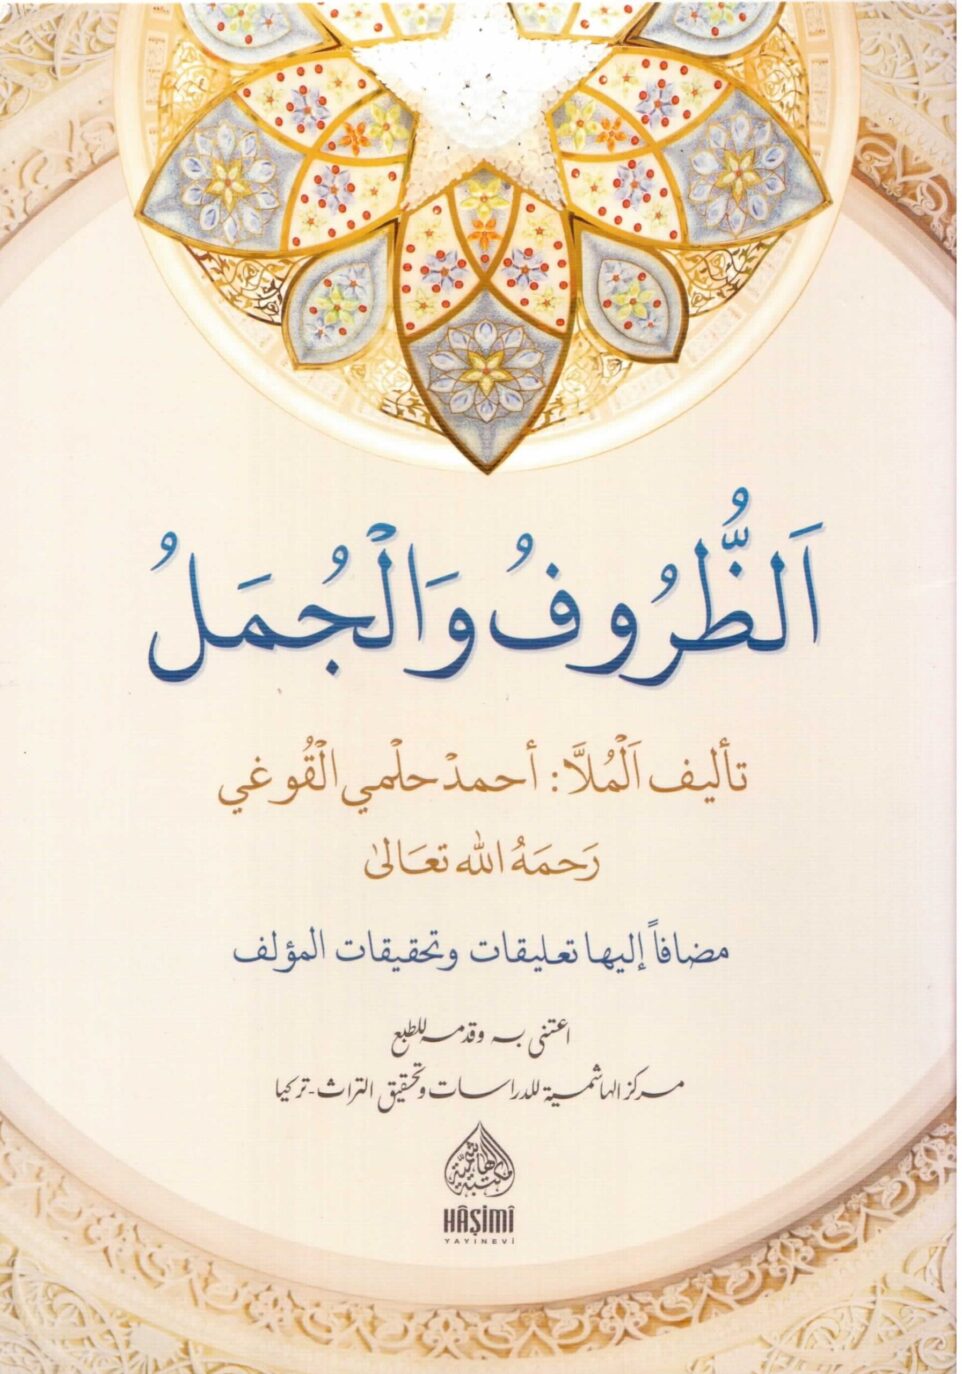 اَلظُّرُوفُ وَالْجُمَلُ
تأليف اَلْمُلاَّ: أحمدْ حلْمي الْقُوغي
رَحمَهُ الله تعَالىٰ
مضافاً إليها تعليقات وتحقيقات المؤلف
اعتنى به وقدمه للطبع
مركز الهاشمية للدراسات وتحقيق التراث-تركيا
مكتبة الهاشمية
HÂŞİMÎ
YAYINEVİ